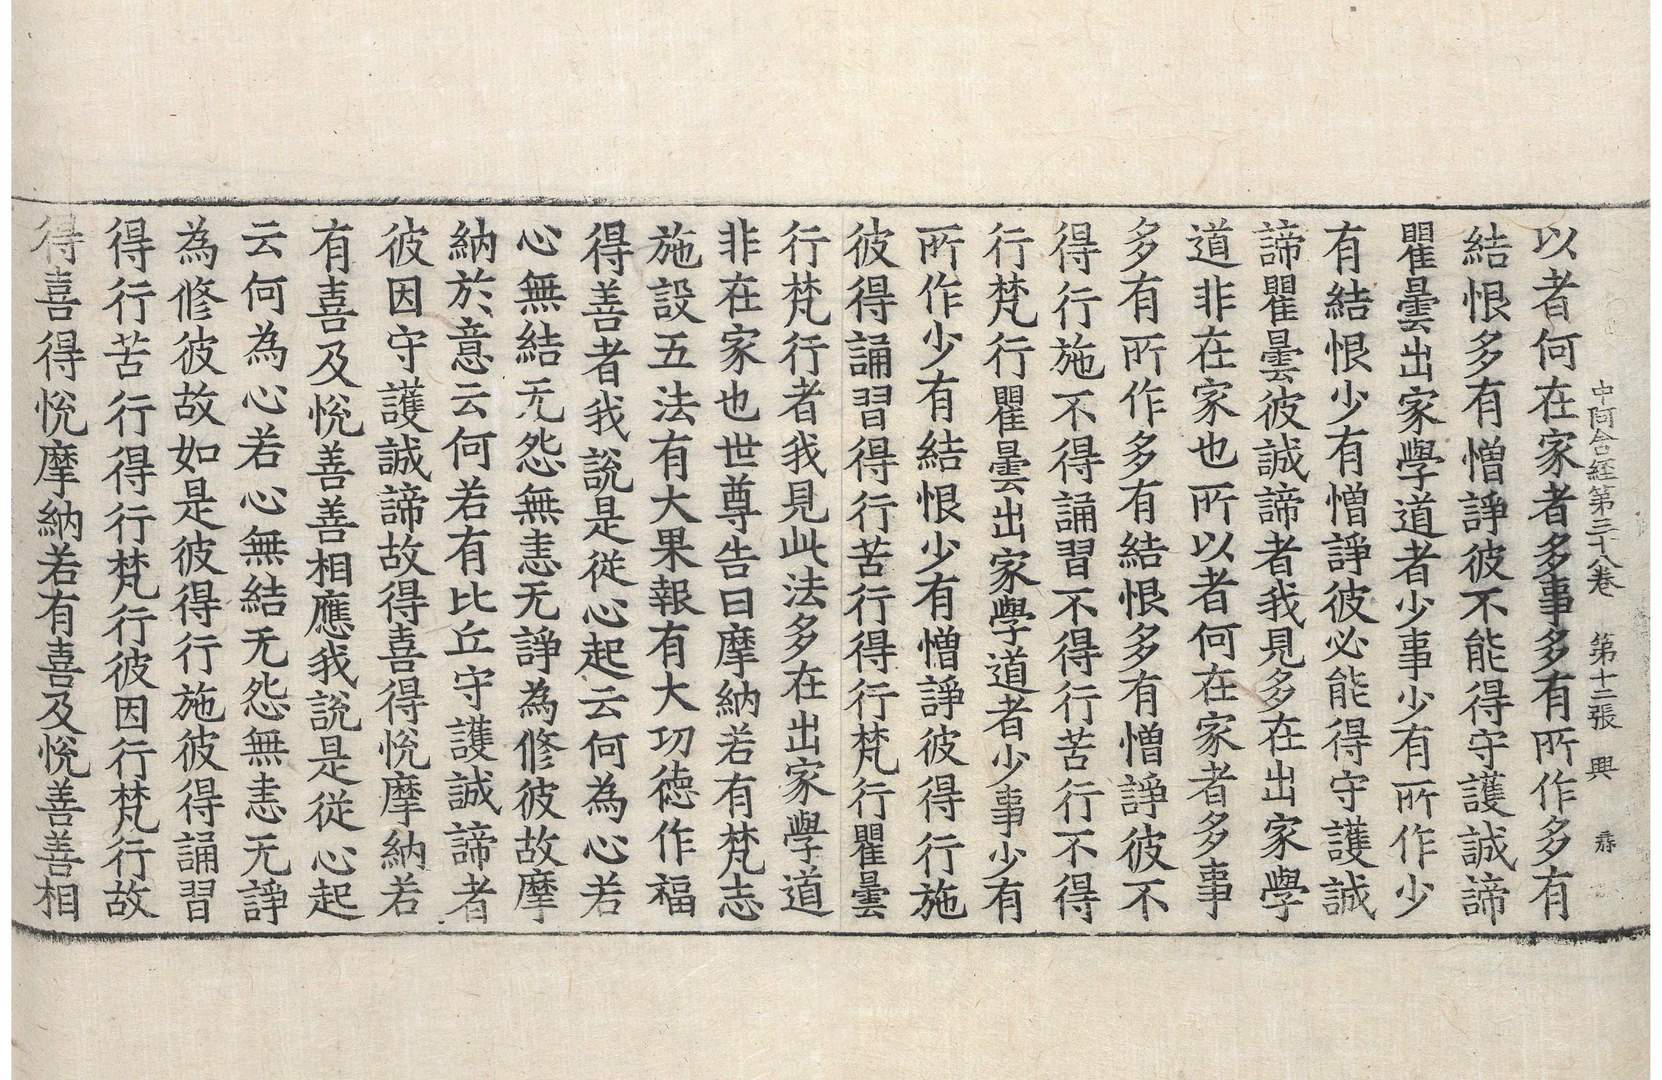 中阿含經第三十八卷 第十二張 興
以者何在家者多事多有所作多有
結恨多有憎諍彼不能得守護誠諦
瞿曇出家學道者少事少有所作少
有結恨少有憎諍彼必能得守護誠
諦瞿曇彼誠諦者我見多在出家學
道非在家也所以者何在家者多事
多有所作多有結恨多有憎諍彼不
得行施不得誦習不得行苦行不得
行梵行瞿曇出家學道者少事少有
所作少有結恨少有憎諍彼得行施
彼得誦習得行苦行得行梵行瞿曇
行梵行者我見此法多在出家學道
非在家也世尊告曰摩納若有梵志
施設五法有大果報有大功德作福
得善者我說是從心起云何為心若
心無結无怨無恚无諍為修彼故摩
納於意云何若有比丘守護誠諦者
彼因守護誠諦故得喜得悅摩納若
有喜及悅善善相應我說是從心起
云何為心若心無結无怨無恚无諍
為修彼故如是彼得行施彼得誦習
得行苦行得行梵行彼因行梵行故
得喜得悅摩納若有喜及悅善善相